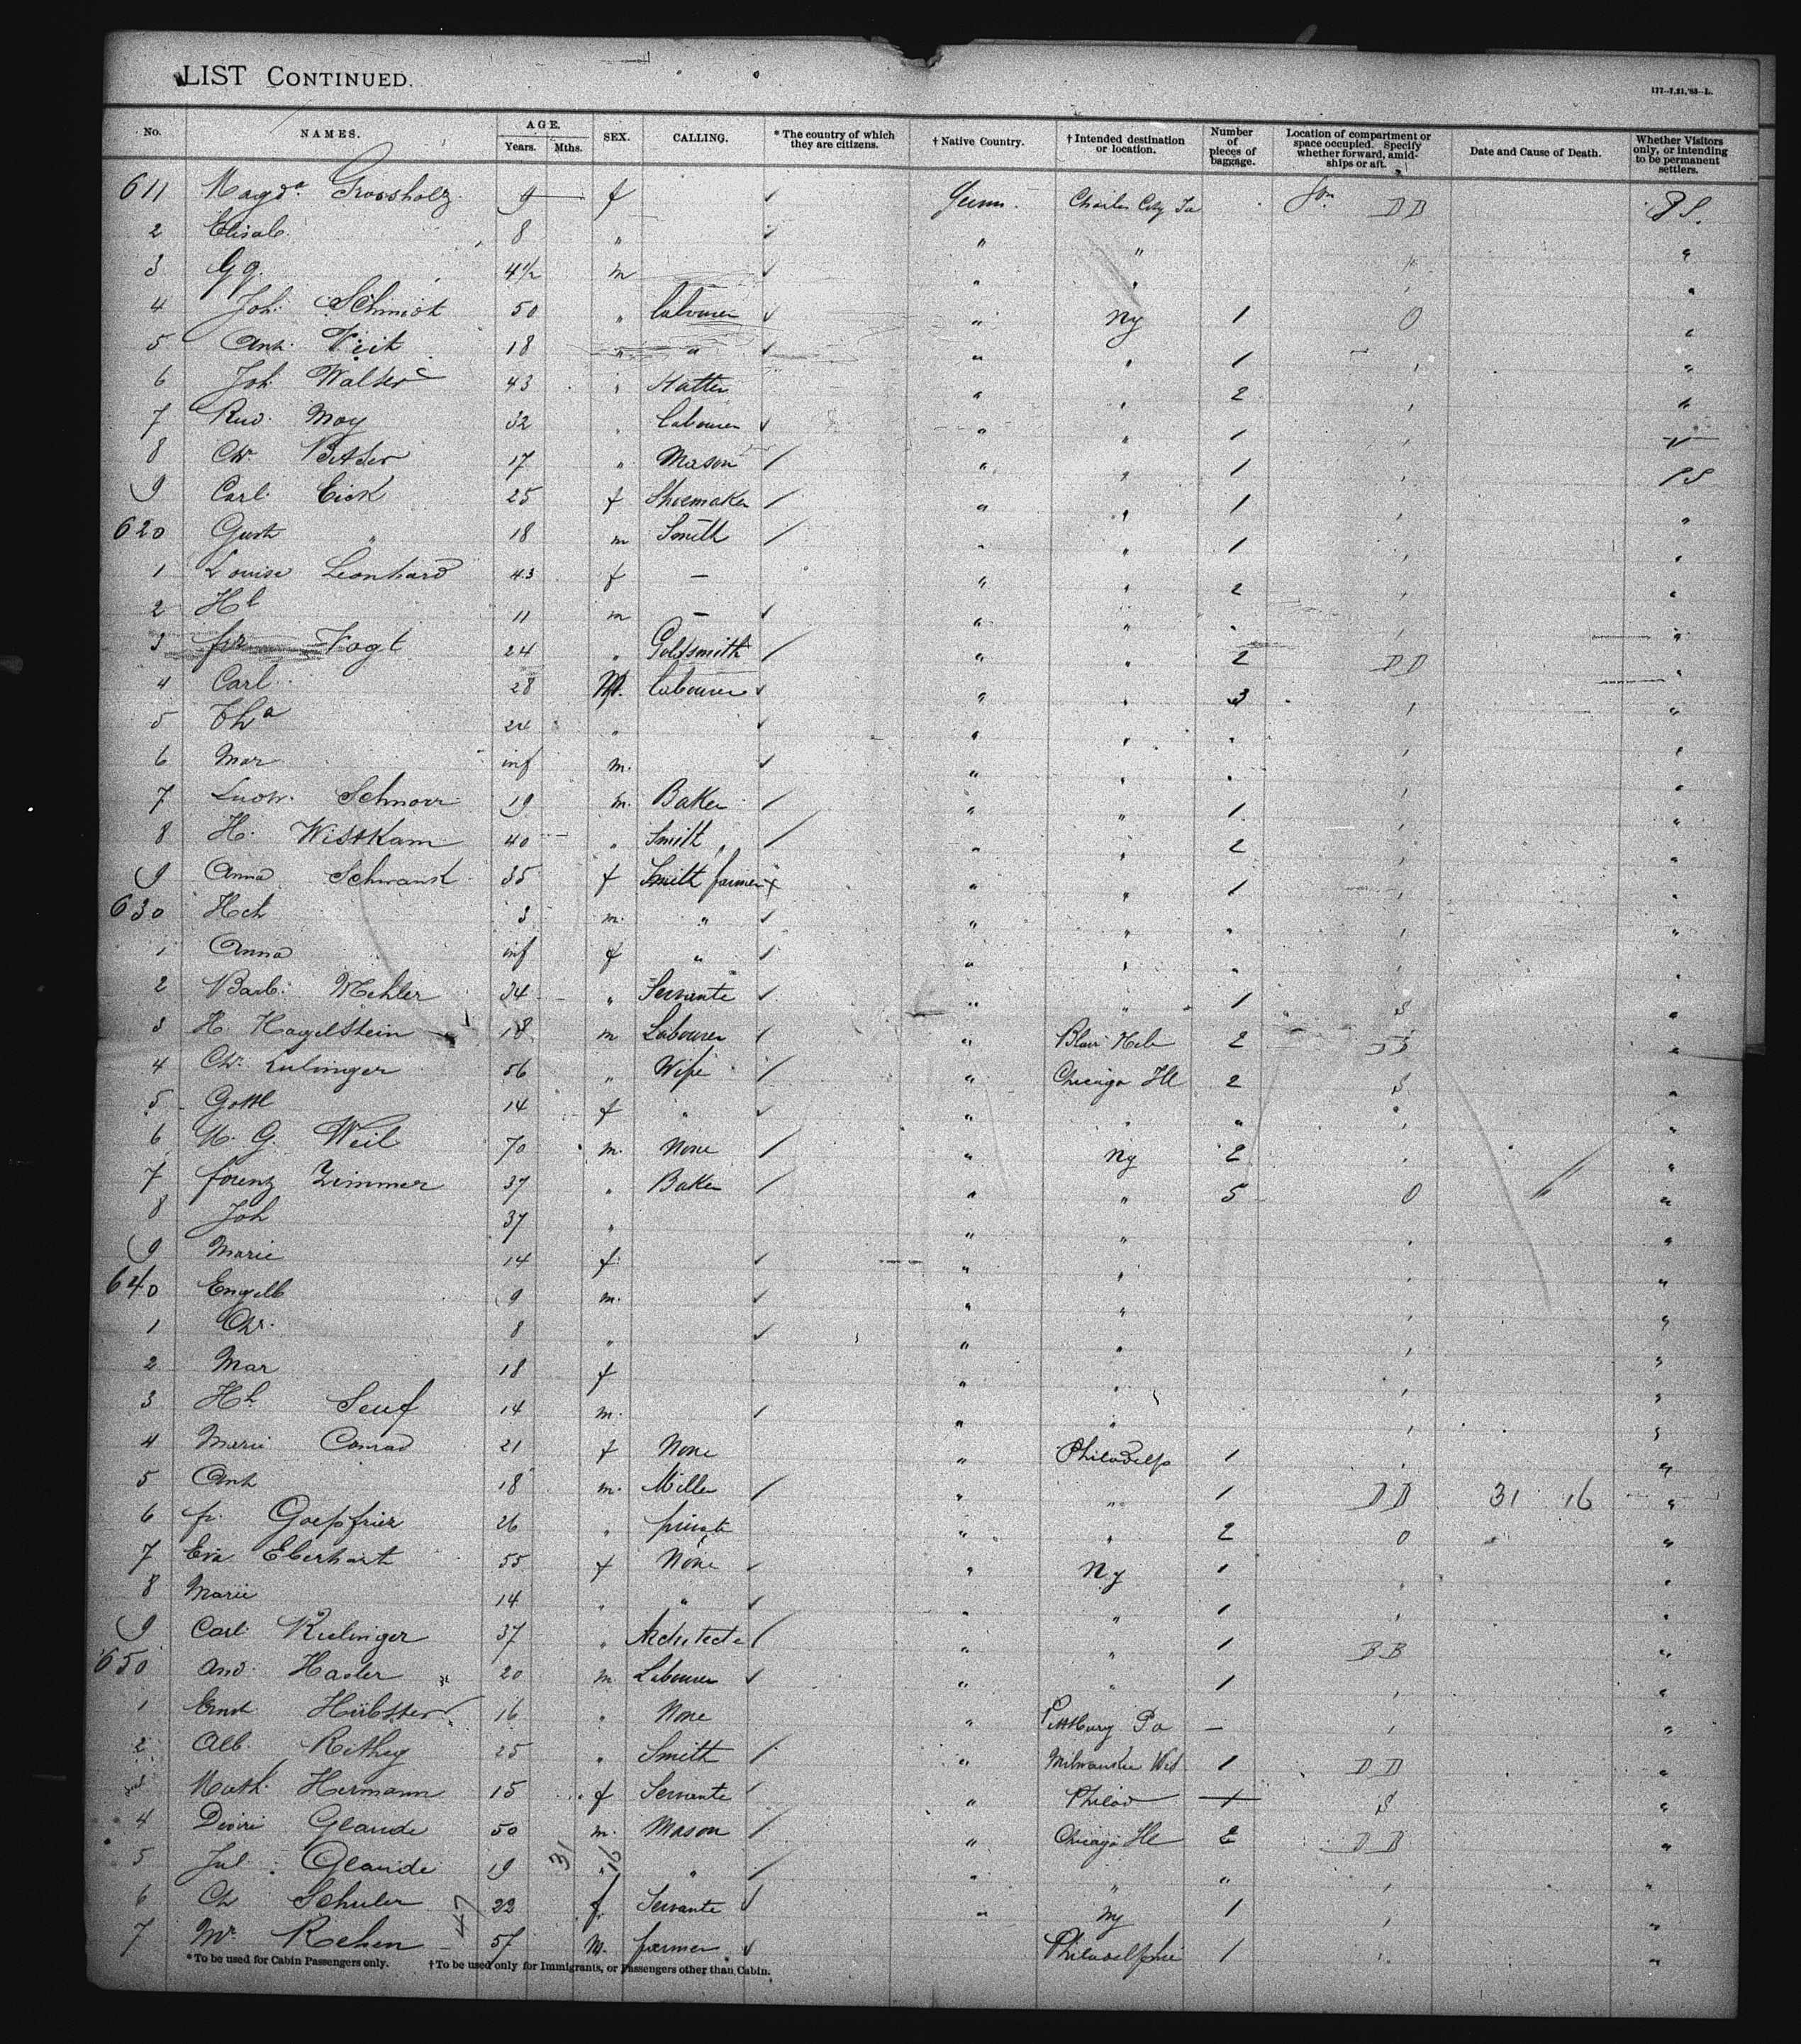 LIST CONTINUED.
No. NAMES. AGE. Years. Mths. SEX. CALLING. * The country of which they are citizens. † Native Country. † Intended destination or location. Number of pieces of baggage. Location of compartment or space occupied. Specify whether forward, amidships or aft. Date and Cause of Death. Whether Visitors only, or intending to be permanent settlers.
611 Magda. Groosholz 9 f Germ. Charles City Ia DD P S.
2 Elisab. 8 " " " "
3 Gg. 4½ m " " "
4 Joh. Schmidt 50 " Labourer " Ny 1 O "
5 Ant. Veit 18 " " " " 1 "
6 Joh. Walter 43 " Hatter " " 2 "
7 Rud. May 32 " Labourer " " 1
8 Chr. 17 " Mason " " 1 PS
9 Carl. Eick 25 f Shoemaker " " 1 "
620 Gust " 18 m Smith " " 1 "
1 Louise Leonhard 43 f — " " 2 "
2 Hh 11 m — " " "
3 fr Vogt 24 " Goldsmith " " 2 DD "
4 Carl 28 M. Labourer " " 3 "
5 24 " " " "
6 Mar inf m. " " "
7 Ludw. Schnorr 19 m. Baker " " 1 "
8 H. Wistkam 40 " Smith " " 2 "
9 Anna Schwank 35 f Smith farmer " " 1 "
630 Hch 3 m. " " " "
1 Anna inf f " " " "
2 Barb. Mehler 34 " Servante " " 1 S "
3 H. Hagelstein 18 m Labourer " Blair Neb 2 "
4 Chr. 56 " Wife " Chicago Ill 2 S "
5 Gottl 14 f " " " " "
6 G. Weil 70 m. None " Ny 2 "
7 Lorenz Zimmer 37 " Baker " " 5 O "
8 Joh 37 " " " "
9 Marie 14 f. " " "
640 Engelb 9 m. " " "
1 Chr. 8 " " " "
2 Mar 18 f " " "
3 Hh Senf 14 m. " " "
4 Marie Conrad 21 f None " Philadelp 1 "
5 Ant 18 m. Miller " " 1 DD 31 16 "
6 fr. 26 " private " " 2 O "
7 Eva Eberhart 55 f None " Ny 1 "
8 Marie 14 " " " " 1 "
9 Carl 37 " Architecte " " 1 "
650 And. Hasler 20 m. Labourer " " 1 "
1 Ernst Hübster 16 " None " Pittsburg Pa — "
2 Alb. 25 " Smith " Milwaukee Wis 1 DD "
3 Math. Hermann 15 f Servante " Philad 1 S "
4 Glaude 50 m. Mason " Chicago Ill 2 "
5 Jul. Glaude 19 31 " 16 " " " " "
6 Ch Schuler 22 f. Servante " Ny 1 "
7 Mr. 47 57 M. farmer Philadelphie 1 "
* To be used for Cabin Passengers only. † To be used only for Immigrants, or Passengers other than Cabin.